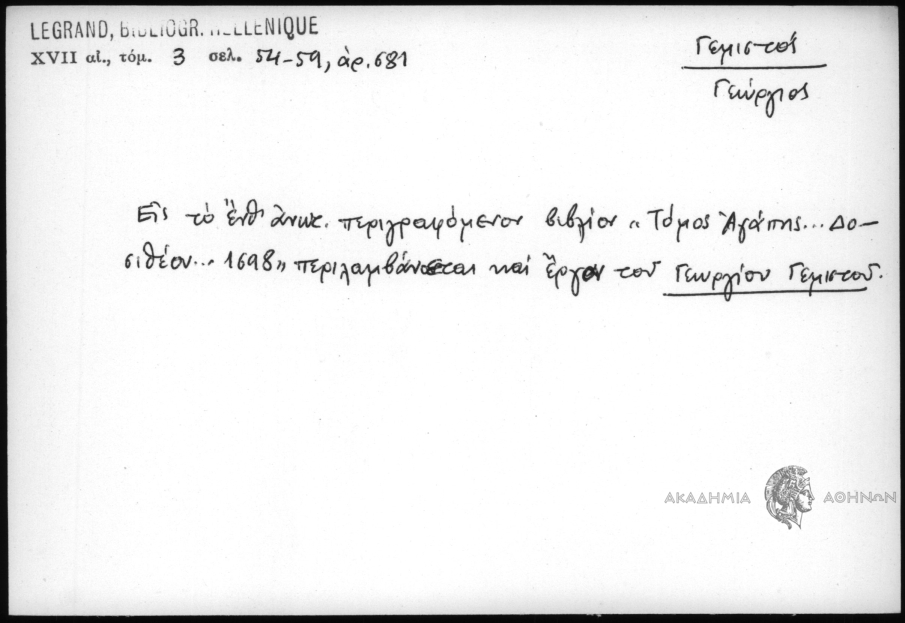 LEGRAND, BIBLIOGR. HELLENIQUE
XVII αἰ., τόμ. 3 σελ. 54-59, ἀρ. 681
Γεμιστοῦ
Γεώργιος
Εἰς τὸ ἔνθ' ἀνωτ. περιγραφόμενον βιβλίον «Τόμος Ἀγάπης... Δο-
σιθέου... 1698» περιλαμβάνεται καὶ ἔργον τοῦ Γεωργίου Γεμιστοῦ.
ΑΚΑΔΗΜΙΑ ΑΘΗΝΩΝ